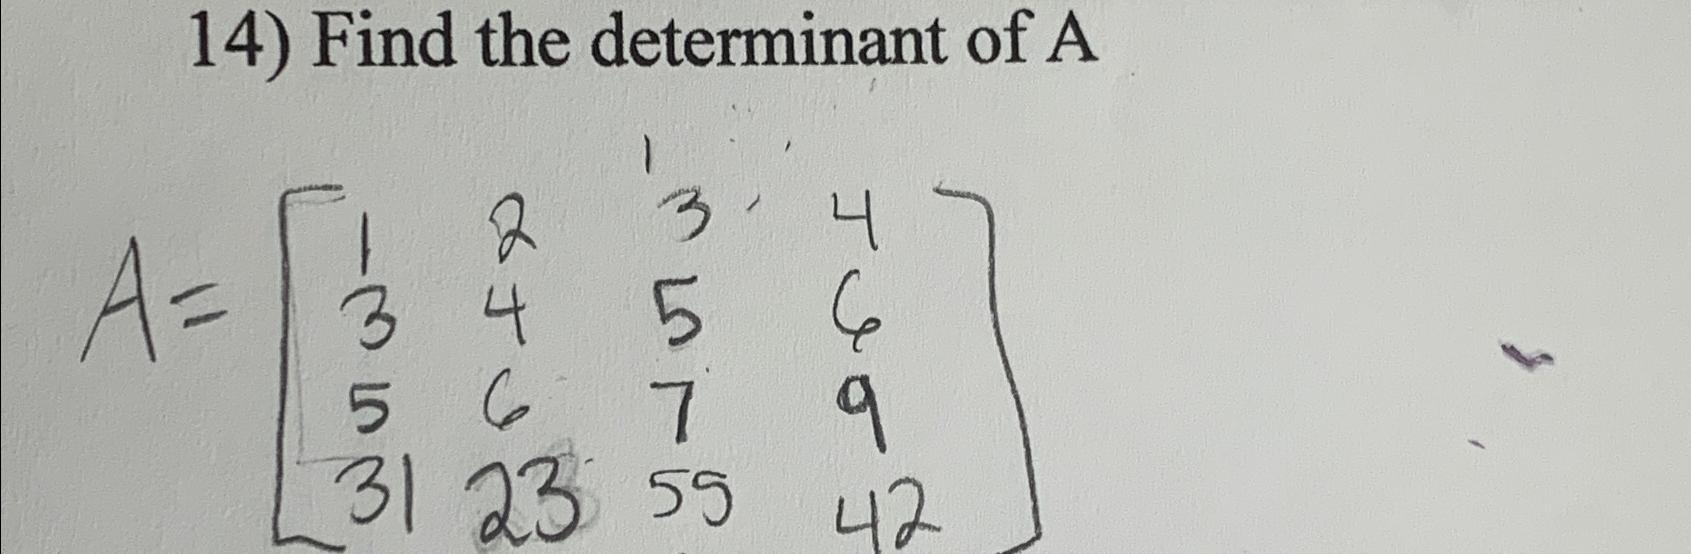 14) Find the determinant of A
1
1 2 3 4
A= 3 4 5 6
5 6 7 9
31 23 55 42